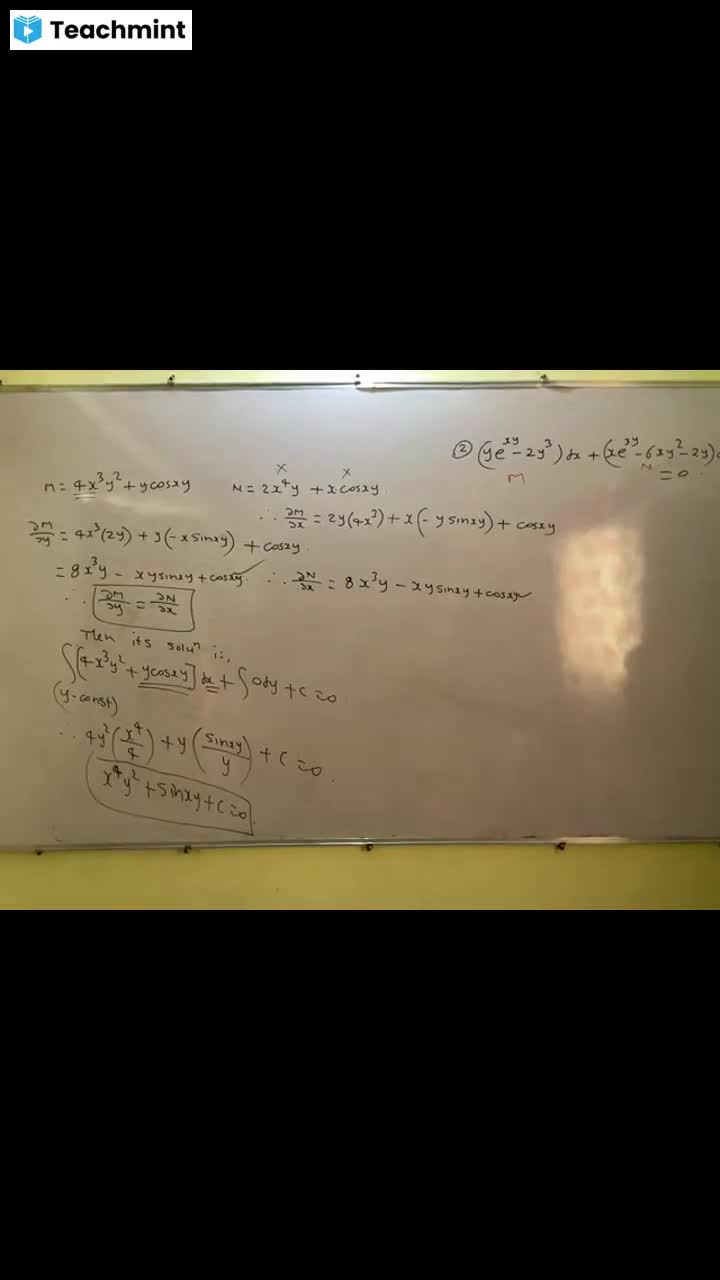 Teachmint
② (ye^{xy} - 2y³) dx + (xe^{xy} - 6xy² - 2y)
M N = 0
x x
M = 4x³y² + ycosxy N = 2x⁴y + xcosxy
∴ ∂M/∂x = 2y(4x³) + x(-ysinxy) + cosxy
∂M/∂y = 4x³(2y) + y(-xsinxy) + cosxy.
= 8x³y - xysinxy + cosxy ∴ ∂N/∂x = 8x³y - xysinxy + cosxy
∴ ∂M/∂y = ∂N/∂x
Then its soluⁿ is,
∫[4x³y² + ycosxy] dx + ∫0dy + c = 0
(y-const)
∴ 4y²(x⁴/4) + y(sinxy/y) + c = 0.
x⁴y² + sinxy + c = 0.